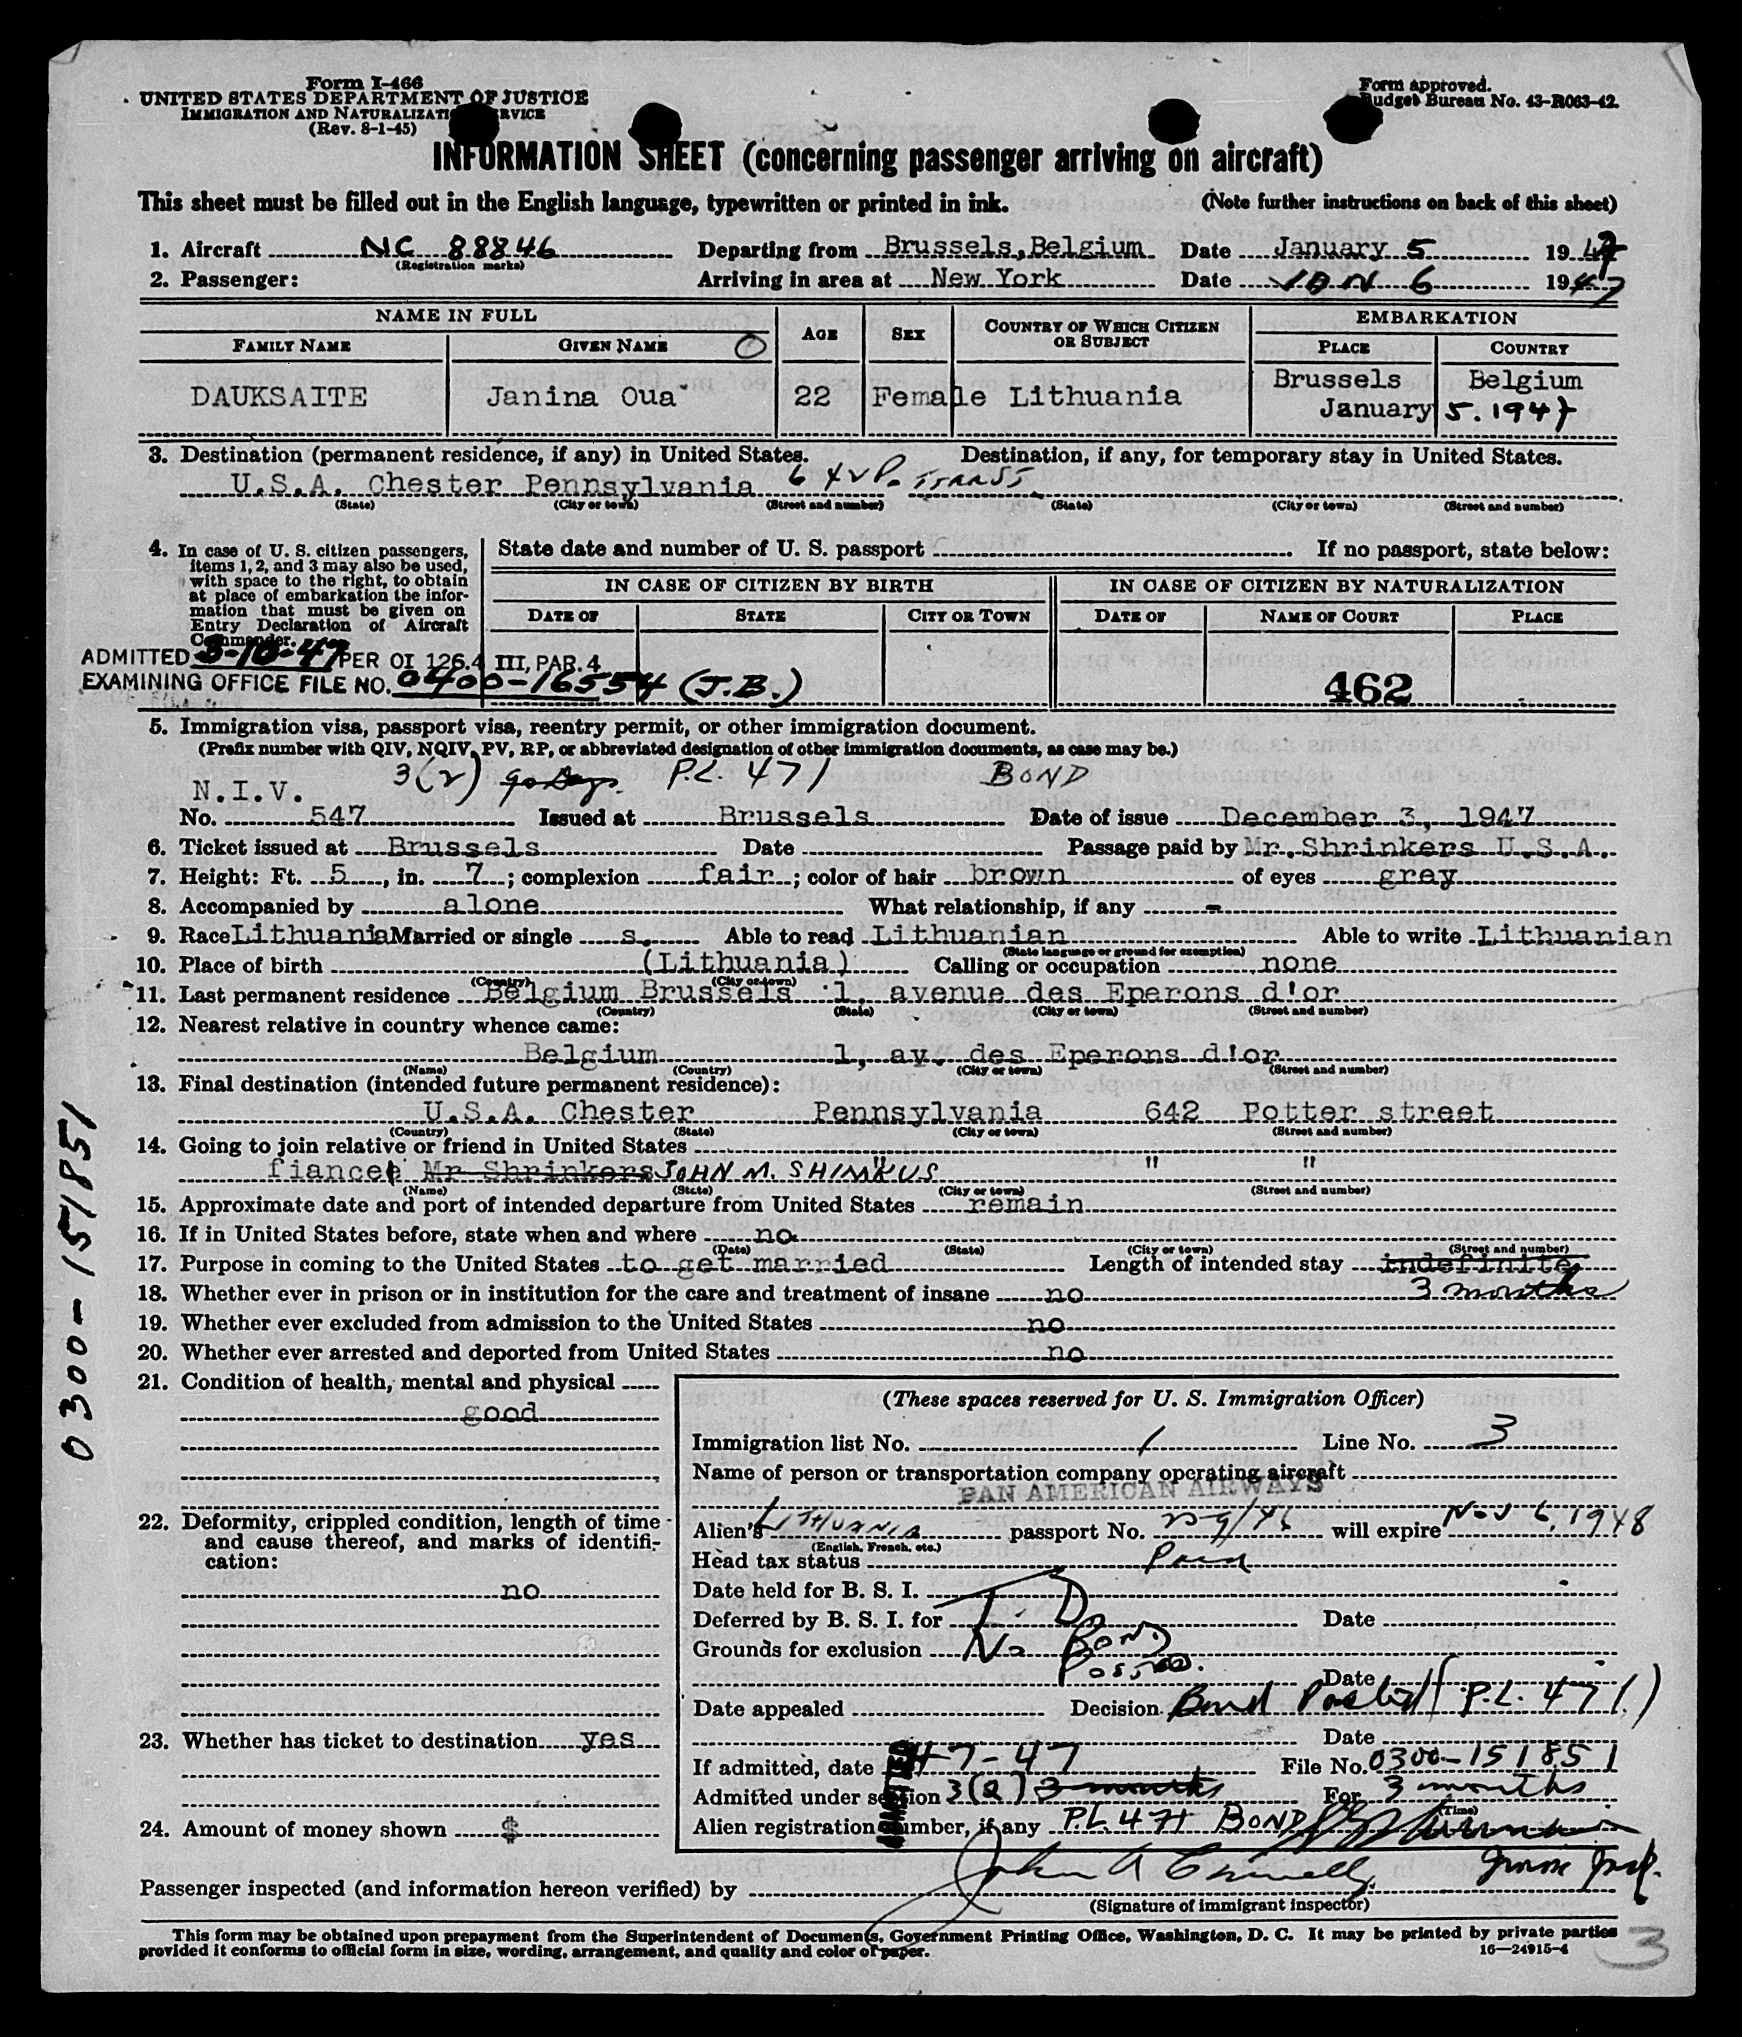 Form I-466
UNITED STATES DEPARTMENT OF JUSTICE
IMMIGRATION AND NATURALIZATI RVICE
(Rev. 8-1-45)
Form approved.
Budget Bureau No. 43-R063-42.
INFORMATION SHEET (concerning passenger arriving on aircraft)
This sheet must be filled out in the English language, typewritten or printed in ink. (Note further instructions on back of this sheet)
1. Aircraft NC 88846 Departing from Brussels, Belgium Date January 5 1947
(Registration marks)
2. Passenger: Arriving in area at New York Date JAN 6 1947
NAME IN FULL AGE SEX COUNTRY OF WHICH CITIZEN OR SUBJECT EMBARKATION
FAMILY NAME GIVEN NAME PLACE COUNTRY
DAUKSAITE Janina Oua 22 Female Lithuania Brussels Belgium
January 5.1947
3. Destination (permanent residence, if any) in United States. Destination, if any, for temporary stay in United States.
U.S.A. Chester Pennsylvania
(State) (City or town) (Street and number) (State) (City or town) (Street and number)
4. In case of U. S. citizen passengers, items 1, 2, and 3 may also be used, with space to the right, to obtain at place of embarkation the information that must be given on Entry Declaration of Aircraft Commander.
State date and number of U. S. passport If no passport, state below:
IN CASE OF CITIZEN BY BIRTH IN CASE OF CITIZEN BY NATURALIZATION
DATE OF STATE CITY OR TOWN DATE OF NAME OF COURT PLACE
ADMITTED 3-10-47 PER OI 126.4 III, PAR. 4
EXAMINING OFFICE FILE NO. 0400-16554 (J.B.)
462
5. Immigration visa, passport visa, reentry permit, or other immigration document.
(Prefix number with QIV, NQIV, PV, RP, or abbreviated designation of other immigration documents, as case may be.)
N.I.V. 3(2) 90 Days. P.L. 471 BOND
No. 547 Issued at Brussels Date of issue December 3, 1947
6. Ticket issued at Brussels Date Passage paid by Mr. Shrinkers U.S.A.
7. Height: Ft. 5, in. 7; complexion fair; color of hair brown of eyes gray
8. Accompanied by alone What relationship, if any -
9. Race Lithuania Married or single s. Able to read Lithuanian Able to write Lithuanian
(State language or ground for exemption)
10. Place of birth (Lithuania) Calling or occupation none
(Country) (City or town)
11. Last permanent residence Belgium Brussels 1, avenue des Eperons d'or
(Country) (State) (City or town) (Street and number)
12. Nearest relative in country whence came:
Belgium 1, av. des Eperons d'or
(Name) (Country) (City or town) (Street and number)
13. Final destination (intended future permanent residence):
U.S.A. Chester Pennsylvania 642 Potter street
(Country) (State) (City or town) (Street and number)
14. Going to join relative or friend in United States
fiancee Mr Shrinkers JOHN M. SHIMKUS " " "
(Name) (State) (City or town) (Street and number)
15. Approximate date and port of intended departure from United States remain
16. If in United States before, state when and where no.
(Date) (State) (City or town) (Street and number)
17. Purpose in coming to the United States to get married Length of intended stay indefinite
3 months
18. Whether ever in prison or in institution for the care and treatment of insane no
19. Whether ever excluded from admission to the United States no
20. Whether ever arrested and deported from United States no
21. Condition of health, mental and physical
good
22. Deformity, crippled condition, length of time and cause thereof, and marks of identification:
no
23. Whether has ticket to destination yes
24. Amount of money shown $
(These spaces reserved for U. S. Immigration Officer)
Immigration list No. 1 Line No. 3
Name of person or transportation company operating aircraft
PAN AMERICAN AIRWAYS
Alien's LITHUANIA passport No. will expire Nov 6, 1948
(English, French, etc.)
Head tax status Paid
Date held for B. S. I.
Deferred by B. S. I. for T.D. Date
Grounds for exclusion No Bond
Posted. Date
Date appealed Decision Bond Posted (P.L. 471.)
Date
If admitted, date 4-7-47 File No. 0300-151851
Admitted under section 3(2) 3 months For 3 months
(Time)
Alien registration number, if any P.L 471 BOND
ADMITTED
Passenger inspected (and information hereon verified) by John A
(Signature of immigrant inspector)
This form may be obtained upon prepayment from the Superintendent of Documents, Government Printing Office, Washington, D. C. It may be printed by private parties
provided it conforms to official form in size, wording, arrangement, and quality and color of paper. 16—24915-4
3
0300-151851